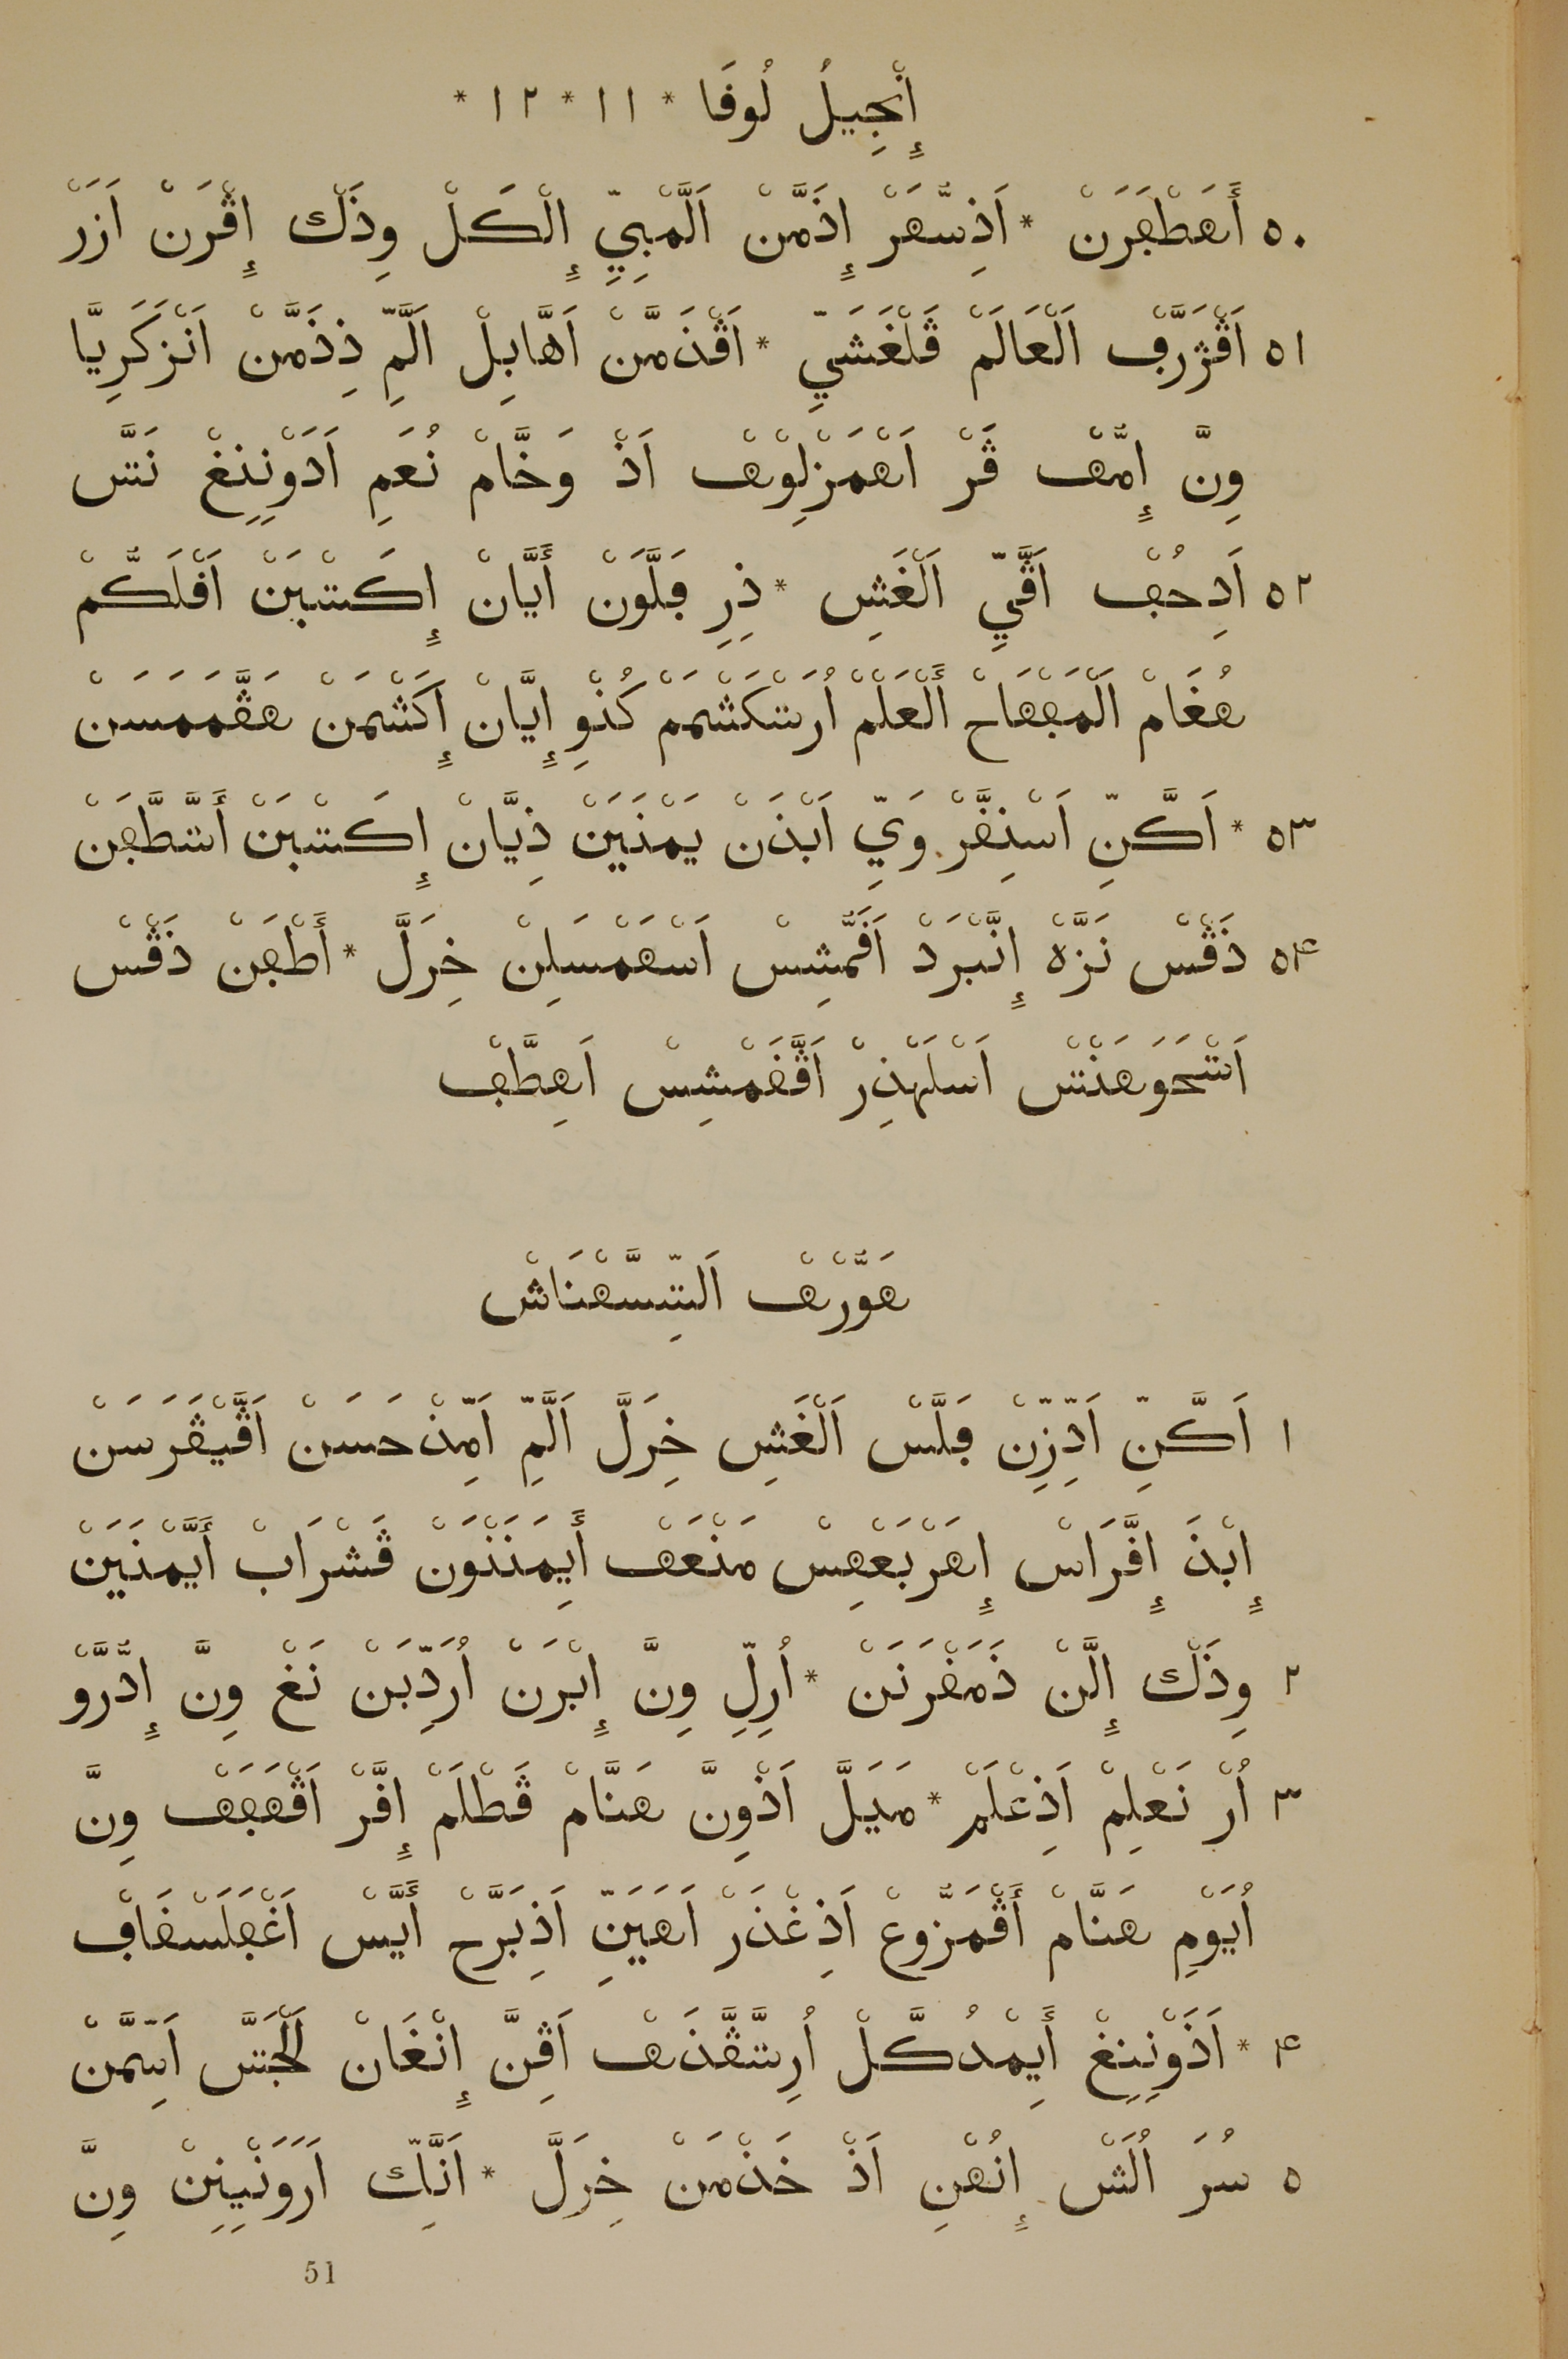 إِنْجِيلُ لُوفَا * ١١ * ١٢ *
٥٠ أَهَطْڢَرَنْ * اَذِسَّهَرْ إِذَمَّنْ اَلَّمْبِيِّ إِلْكَلْ وِذَلْك إِڤْرَنْ اَزَرْ
٥١ اَڤْژَرَّڢْ اَلْعَالَمْ ڤَلْغَشَيِّ * اَڤْذَمَّنْ اَهَّابِلْ اَلَّمِّ ذِذَمَّنْ اَنْزَكَرِيَّا
وِنَّ إِمُّهْ ڤَرْ اَهْمَزْلِوْهْ اَذْ وَخَّامْ نُعَمِ اَدَوْنِنِغْ نَتَّس
٥٢ اَدِحُڢْ اَڤَّيِّ اَلْغَشِ * ذِرِ ڢَلَّوَنْ أَيَّانْ إِكَتْبَنْ اَفْلَكُّمْ
هُغَامْ اَلْمَڢْهَاحْ أَلْعَلْمْ اُرَتْكَشْمَمْ كُنْوِ إِيَّانْ إِكَشْمَنْ هَڤَّمَمَسَنْ
٥٣ * اَكَّنِّ اَسْنِڤَّرْ وَيِّ اَبْذَنْ يَمْنَيَنْ ذِيَّانْ إِكَتْبَنْ أَتَّطَّڢَنْ
٥٤ ذَڤْسْ نَزَّهْ إِنَّبْرَدْ اَفَمُّشِسْ اَسْهَمْسَلِنْ خِرَلَّ * أَطْڢَنْ ذَڤْسْ
اَتْحَوَهَنْتْس اَسْلَهْذِرْ اَڤَّفَمْشِسْ اَهِطَّڢْ
هَوُّرْهْ اَلتِّسَّعْنَاشْ
١ اَكَّنِّ اَدِّزِّنْ ڢَلَّسْ اَلْغَشِ خِرَلَّ اَلَّمِّ اَمِّذْحَسَنْ اَڤَّيْڤَرَسَنْ
إِبْذَ إِڤَّرَاسْ إِهَرْبَعْهِسْ مَنْعَهْ أَيِمَنَنْوَنْ ڤَشْرَابْ أَيَّمْنَيَنْ
٢ وِذَلْك إِلَّنْ ذَمَفْرَنَنْ * اُرِلِّ وِنَّ إِبْرَنْ اُرَدِّبَنْ نَغْ وِنَّ إِدُّرَّوْ
٣ اُرْ نَعْلِمْ اَذِعْلَمْ * مَيَلَّ اَذْوِنَّ هَنَّامْ ڤَطْلَمْ إِڤَّرْ اَڤْهَڢَهْ وِنَّ
اُيَوْمِ هَنَّامْ أَڤْمَزُّوغْ اَذِغْذَرْ اَهَيَنِّ اَذِبَرَّحْ أَيَّسْ اَغْڢَلَسْقَاڢْ
٤ * اَذَوْنِنِغْ أَيِمْدُكَّلْ اُرِتَّڤَّذَهْ اَڤِنَّ إِنْغَانْ لْجَتَّس اَسِّمَّنْ
٥ سُرَ اُلَشْ إِنُهْنِ اَذْ خَذْمَنْ خِرَلَّ * اَنَّلِّك اَرَوَنْيِنِنْ وِنَّ
51